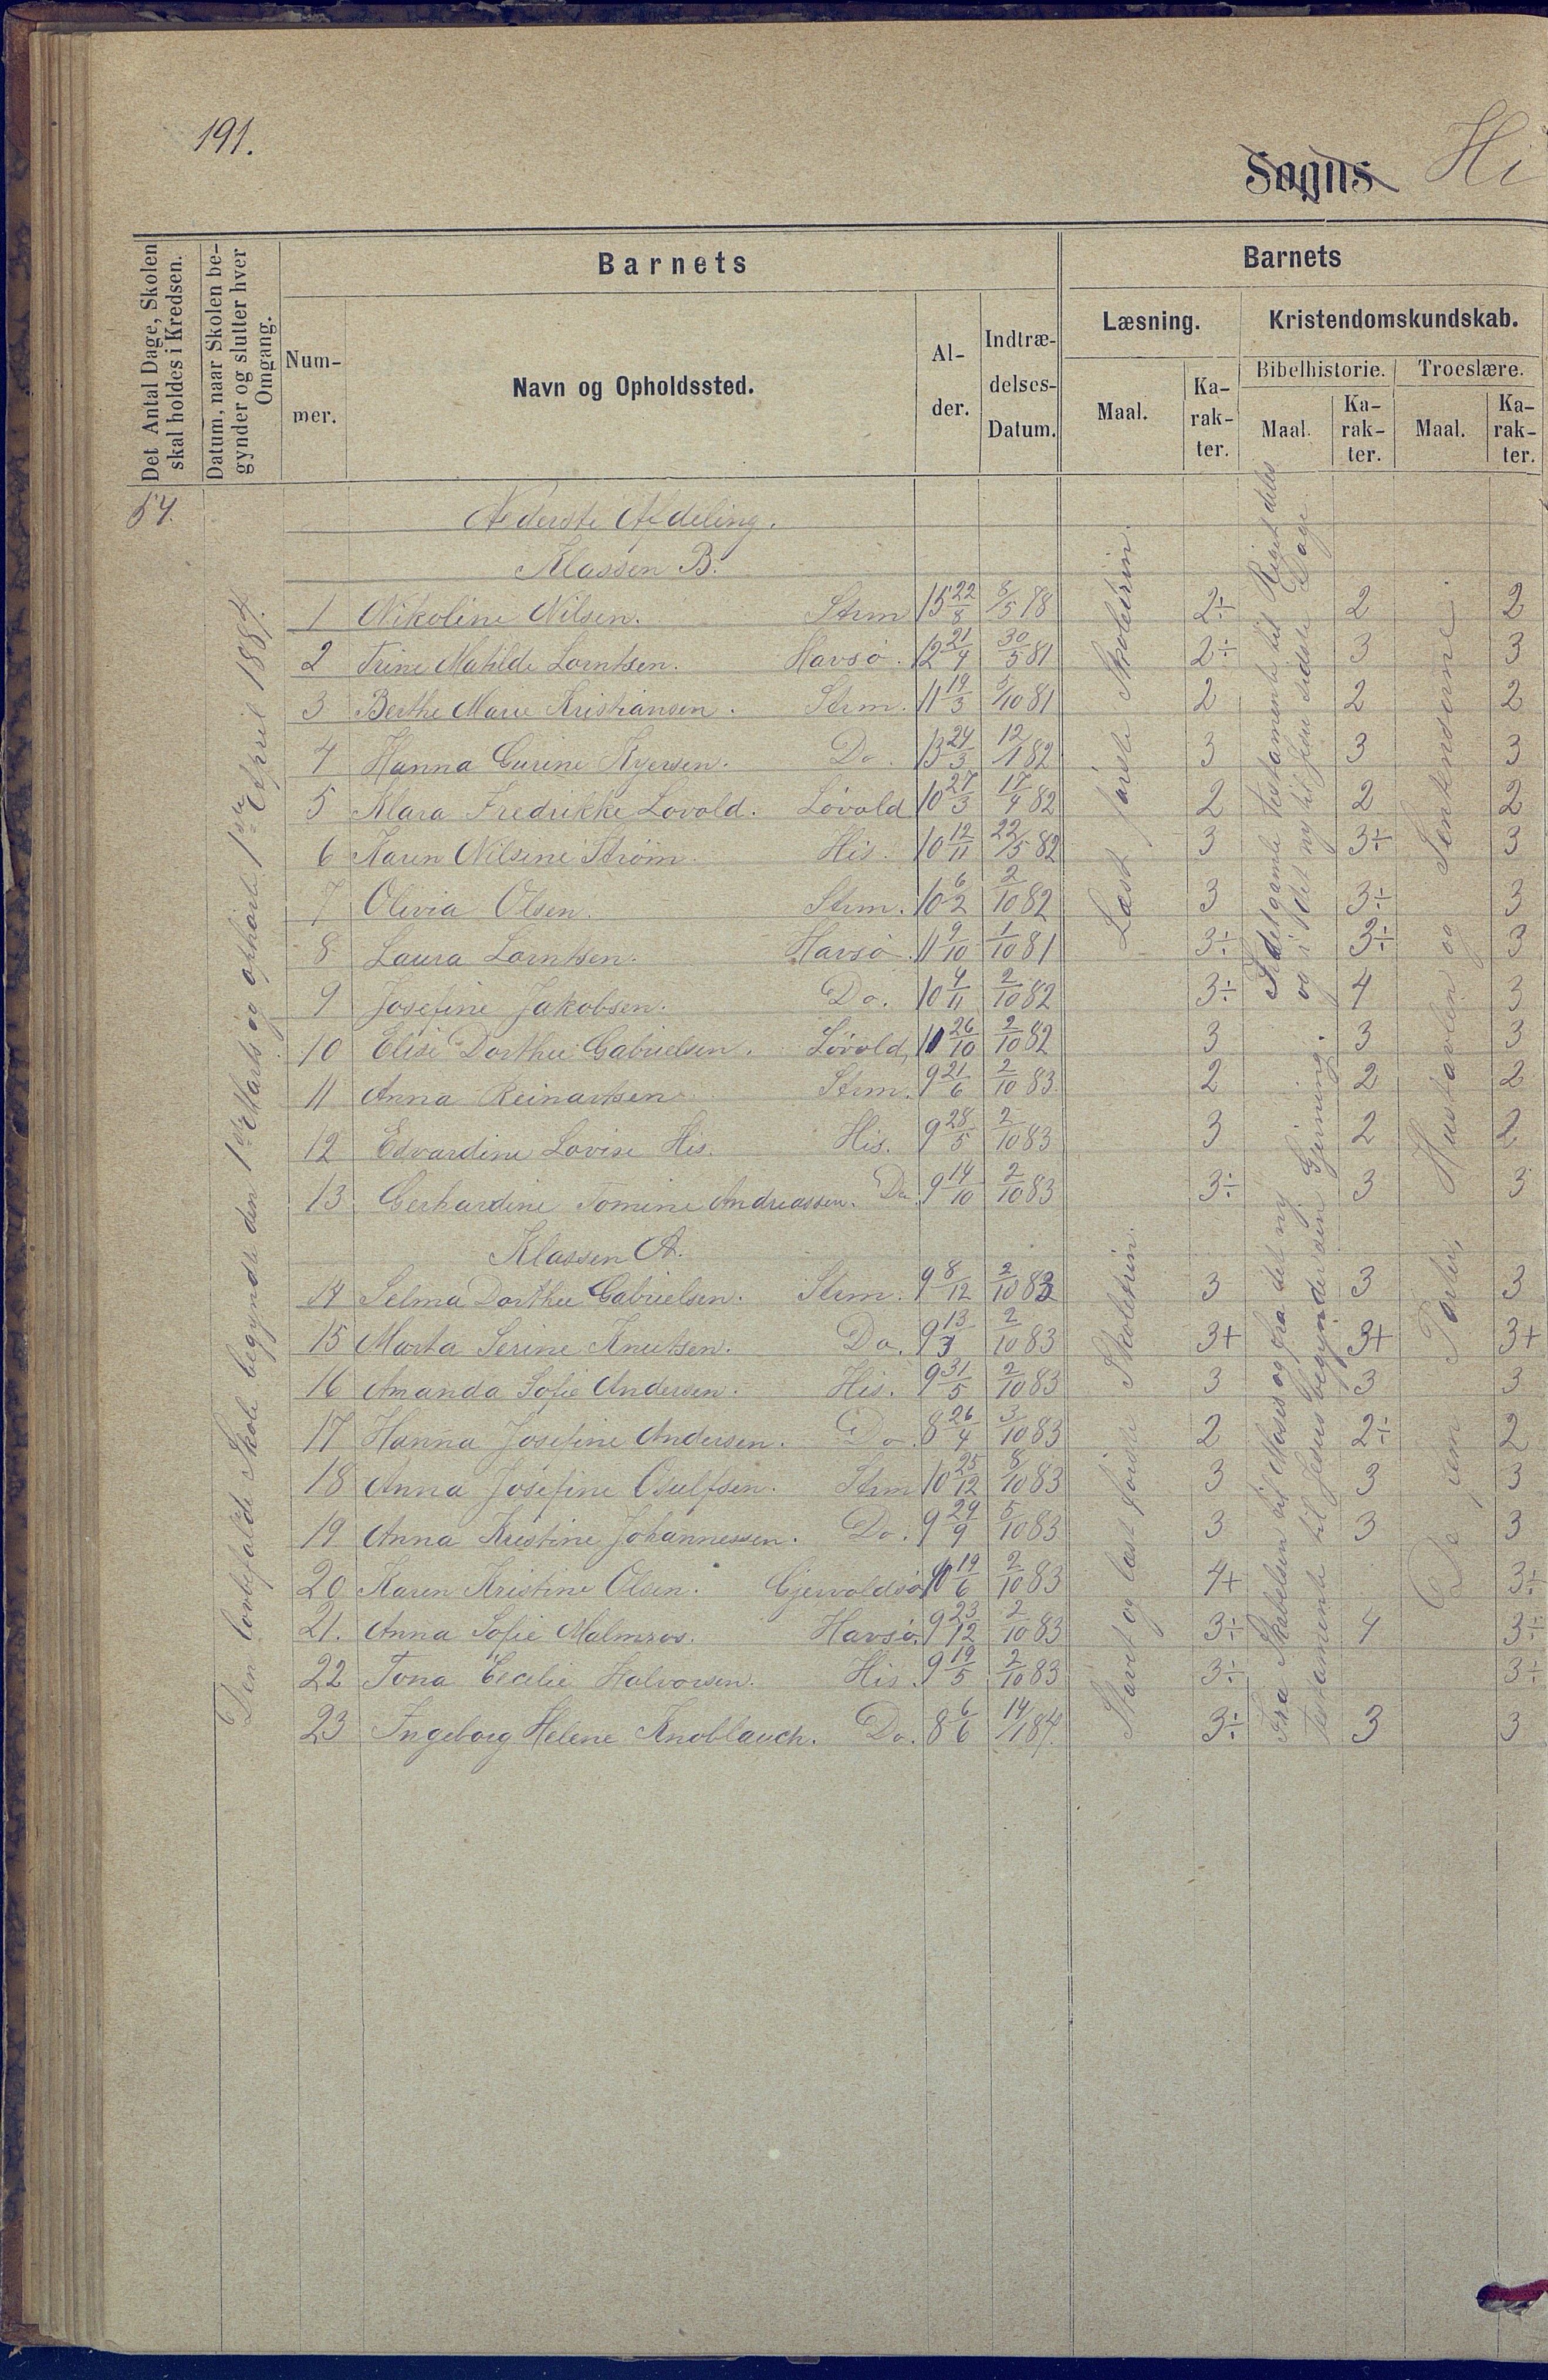 191.
Sogns Hi
Det Antal Dage, Skolen skal holdes i Kredsen.
Datum, naar Skolen begynder og slutter hver Omgang.
Barnets
Nummer.
Navn og Opholdssted.
Alder.
Indtrædelses-Datum.
Barnets
Læsning.
Maal.
Karakter.
Kristendomskundskab.
Bibelhistorie.
Maal.
Karakter.
Troeslære.
Maal.
Karakter.
54.
Den lovbefalede Skole begyndte den 1ste Marts og ophørte 1ste April 1884.
Nederste Afdeling.
Klassen B.
1 Nikoline Nilsen. Strm 15 22/8 8/5 78 2÷ 2 2
2 Trine Matilde Lorntsen. Havsø. 12 21/4 30/5 81 2÷ 3 3
3 Berthe Marie Kristiansen. Strm. 11 19/3 5/10 81 2 2 2
4 Hanna Gurine Ryersen. Do. 13 24/3 12/1 82 3 3 3
5 Klara Fredrikke Løvold. Løvold 10 27/3 17/4 82 2 2 2
6 Karen Nilsine Strøm. His. 10 12/11 22/5 82 3 3÷ 3
7 Olivia Olsen. Strm. 10 6/2 2/10 82 3 3÷ 3
8 Laura Lorntsen. Havsø. 11 9/10 1/10 81 3÷ 3÷ 3
9 Josefine Jakobsen. Do. 10 4/11 2/10 82 3÷ 4 3
10 Elise Dorthe Gabrielsen. Løvold, 10 26/10 2/10 82 3 3 3
11 Anna Reinartsen. Strm. 9 21/6 2/10 83 2 2 2
12 Edvardine Lovise His. His. 9 28/5 2/10 83 3 2 2
13 Gerhardine Tomine Andreassen. Do. 9 14/10 2/10 83 3÷ 3 3
Læst første Skoletrin.
I det gamle Testamente til Riget deles
og i det ny til Jesu sidste Dage
Klassen A.
14 Selma Dorthe Gabrielsen. Strm. 9 8/12 2/10 83 3 3 3
15 Marta Serine Knutsen. Do. 9 13/3 2/10 83 3+ 3+ 3+
16 Amanda Sofie Andersen. His. 9 31/5 2/10 83 3 3 3
17 Hanna Josefine Andersen. Do. 8 26/4 3/10 83 2 2÷ 2
18 Anna Josefine Osulfsen. Strm 10 25/12 8/10 83 3 3 3
19 Anna Kristine Johannessen. Do. 9 29/9 5/10 83 3 3 3
20 Karen Kristine Olsen. Gjervoldsø 10 19/6 2/10 83 4+ 3÷
21. Anna Sofie Malmros. Havsø. 9 23/12 2/10 83 3÷ 4 3÷
22 Tona Cecelie Halvorsen. His. 9 19/5 2/10 83 3÷ 3÷
23 Ingeborg Helene Knoblauch. Do. 8 6/6 14/1 84. 3÷ 3 3
Stavet og læst første Skoletrin.
Fra Skabelsen til Moses og fra det ny
Testamente til Jesus begynder sin Gjerning.
De fem Parter, Hustavlen og Sentenserne.